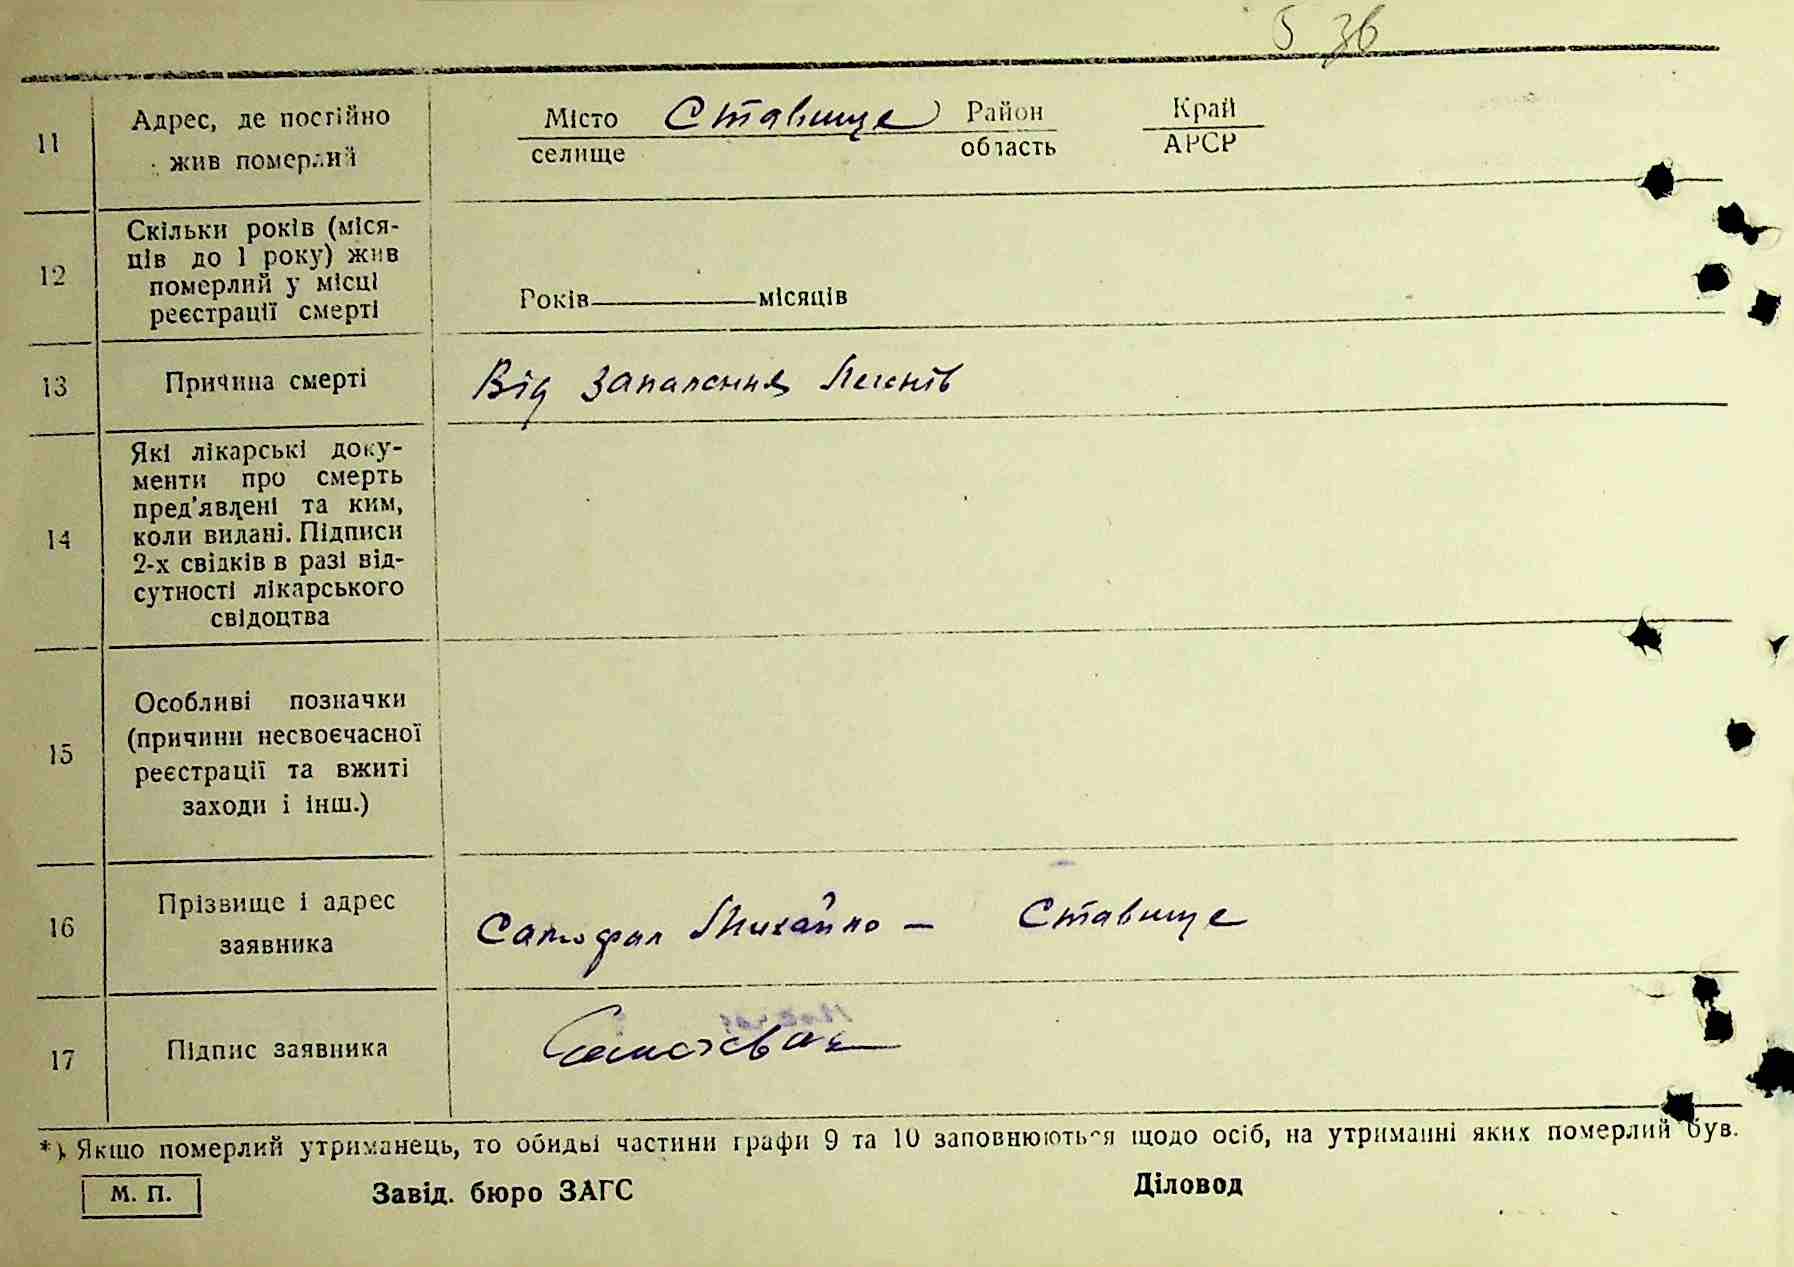 5 36
11 Адрес, де постійно жив померлий Місто селище Ставище Район область Край АРСР
12 Скільки років (міся-
ців до 1 року) жив
померлий у місці
реєстрації смерті
Років — місяців
13 Причина смерті Від запалення Легенів
14 Які лікарські доку-
менти про смерть
пред'явлені та ким,
коли видані. Підписи
2-х свідків в разі від-
сутності лікарського
свідоцтва
15 Особливі позначки
(причини несвоєчасної
реєстрації та вжиті
заходи і інш.)
16 Прізвище і адрес
заявника
Михайло — Ставище
17 Підпис заявника
*) Якщо померлий утриманець, то обидві частини графи 9 та 10 заповнюються щодо осіб, на утриманні яких померлий був.
М. П. Завід. бюро ЗАГС Діловод